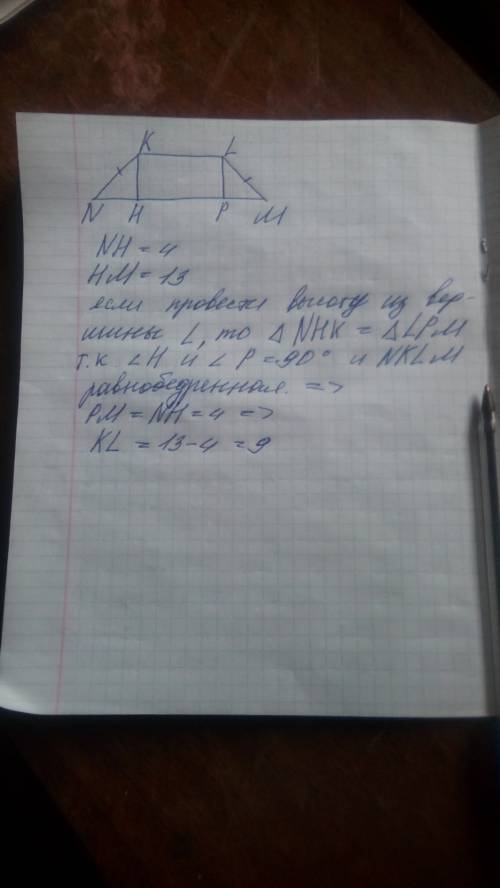 K L
N H P M
NH = 4
HM = 13
если провести высоту из вер-
шины L, то △ NHK = △LPM
т.к. ∠H и ∠P = 90° и NKLM
равнобедренная. =>
PM = NH = 4 =>
KL = 13 - 4 = 9